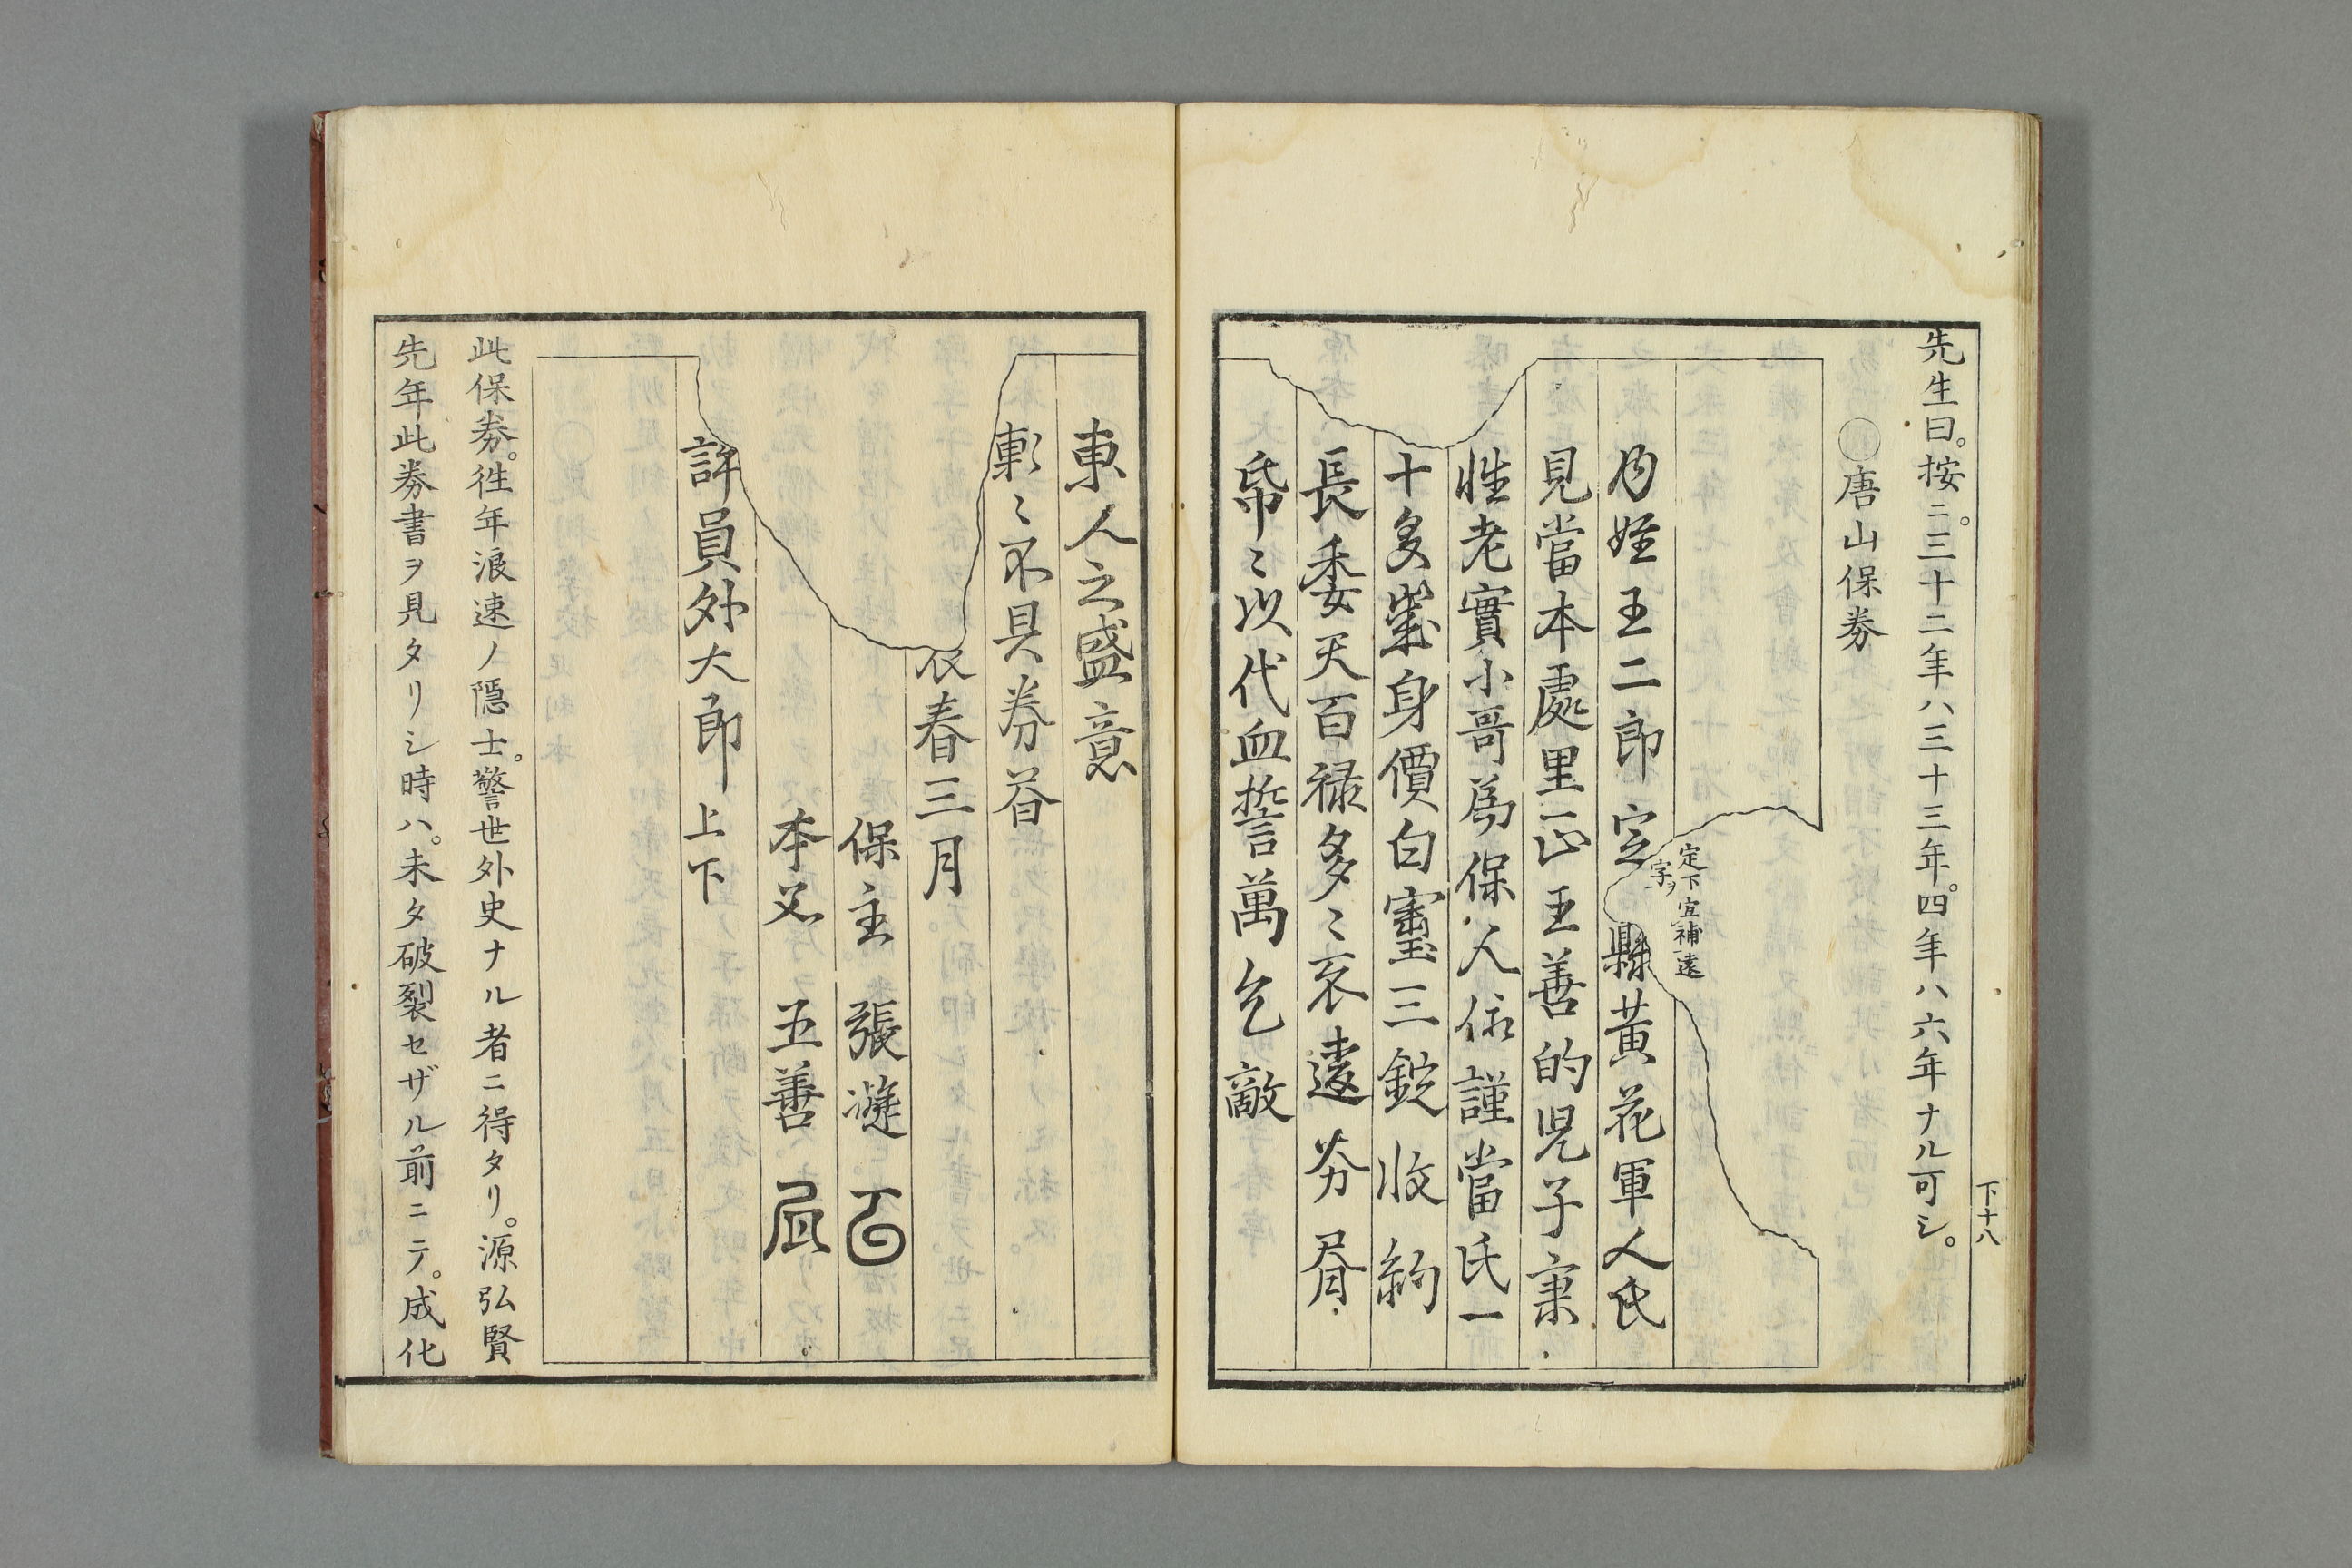 先生曰。按ニ。三十二年ハ三十三年。四年ハ六年ナル可シ。
唐山保券
定下宜補遠
字ヲ
内姪王二郎定
縣黃花軍人氏
見當本處里正王善的児子秉
性老實小哥為保人依謹當氏一
十多歲身價白寶三錠收約
長委天百禄多〻衣遠券眉
帋〻以代血誓萬乞敵
東人之盛意
斬〻不具券荅
春三月
保主 張
本父 五善
許員外大郎 上下
此保券。徃年浪速ノ隱士。警世外史ナル者ニ得タリ。源弘賢
先年此券書ヲ見タリシ時ハ。未タ破裂セザル前ニテ。成化
下十八